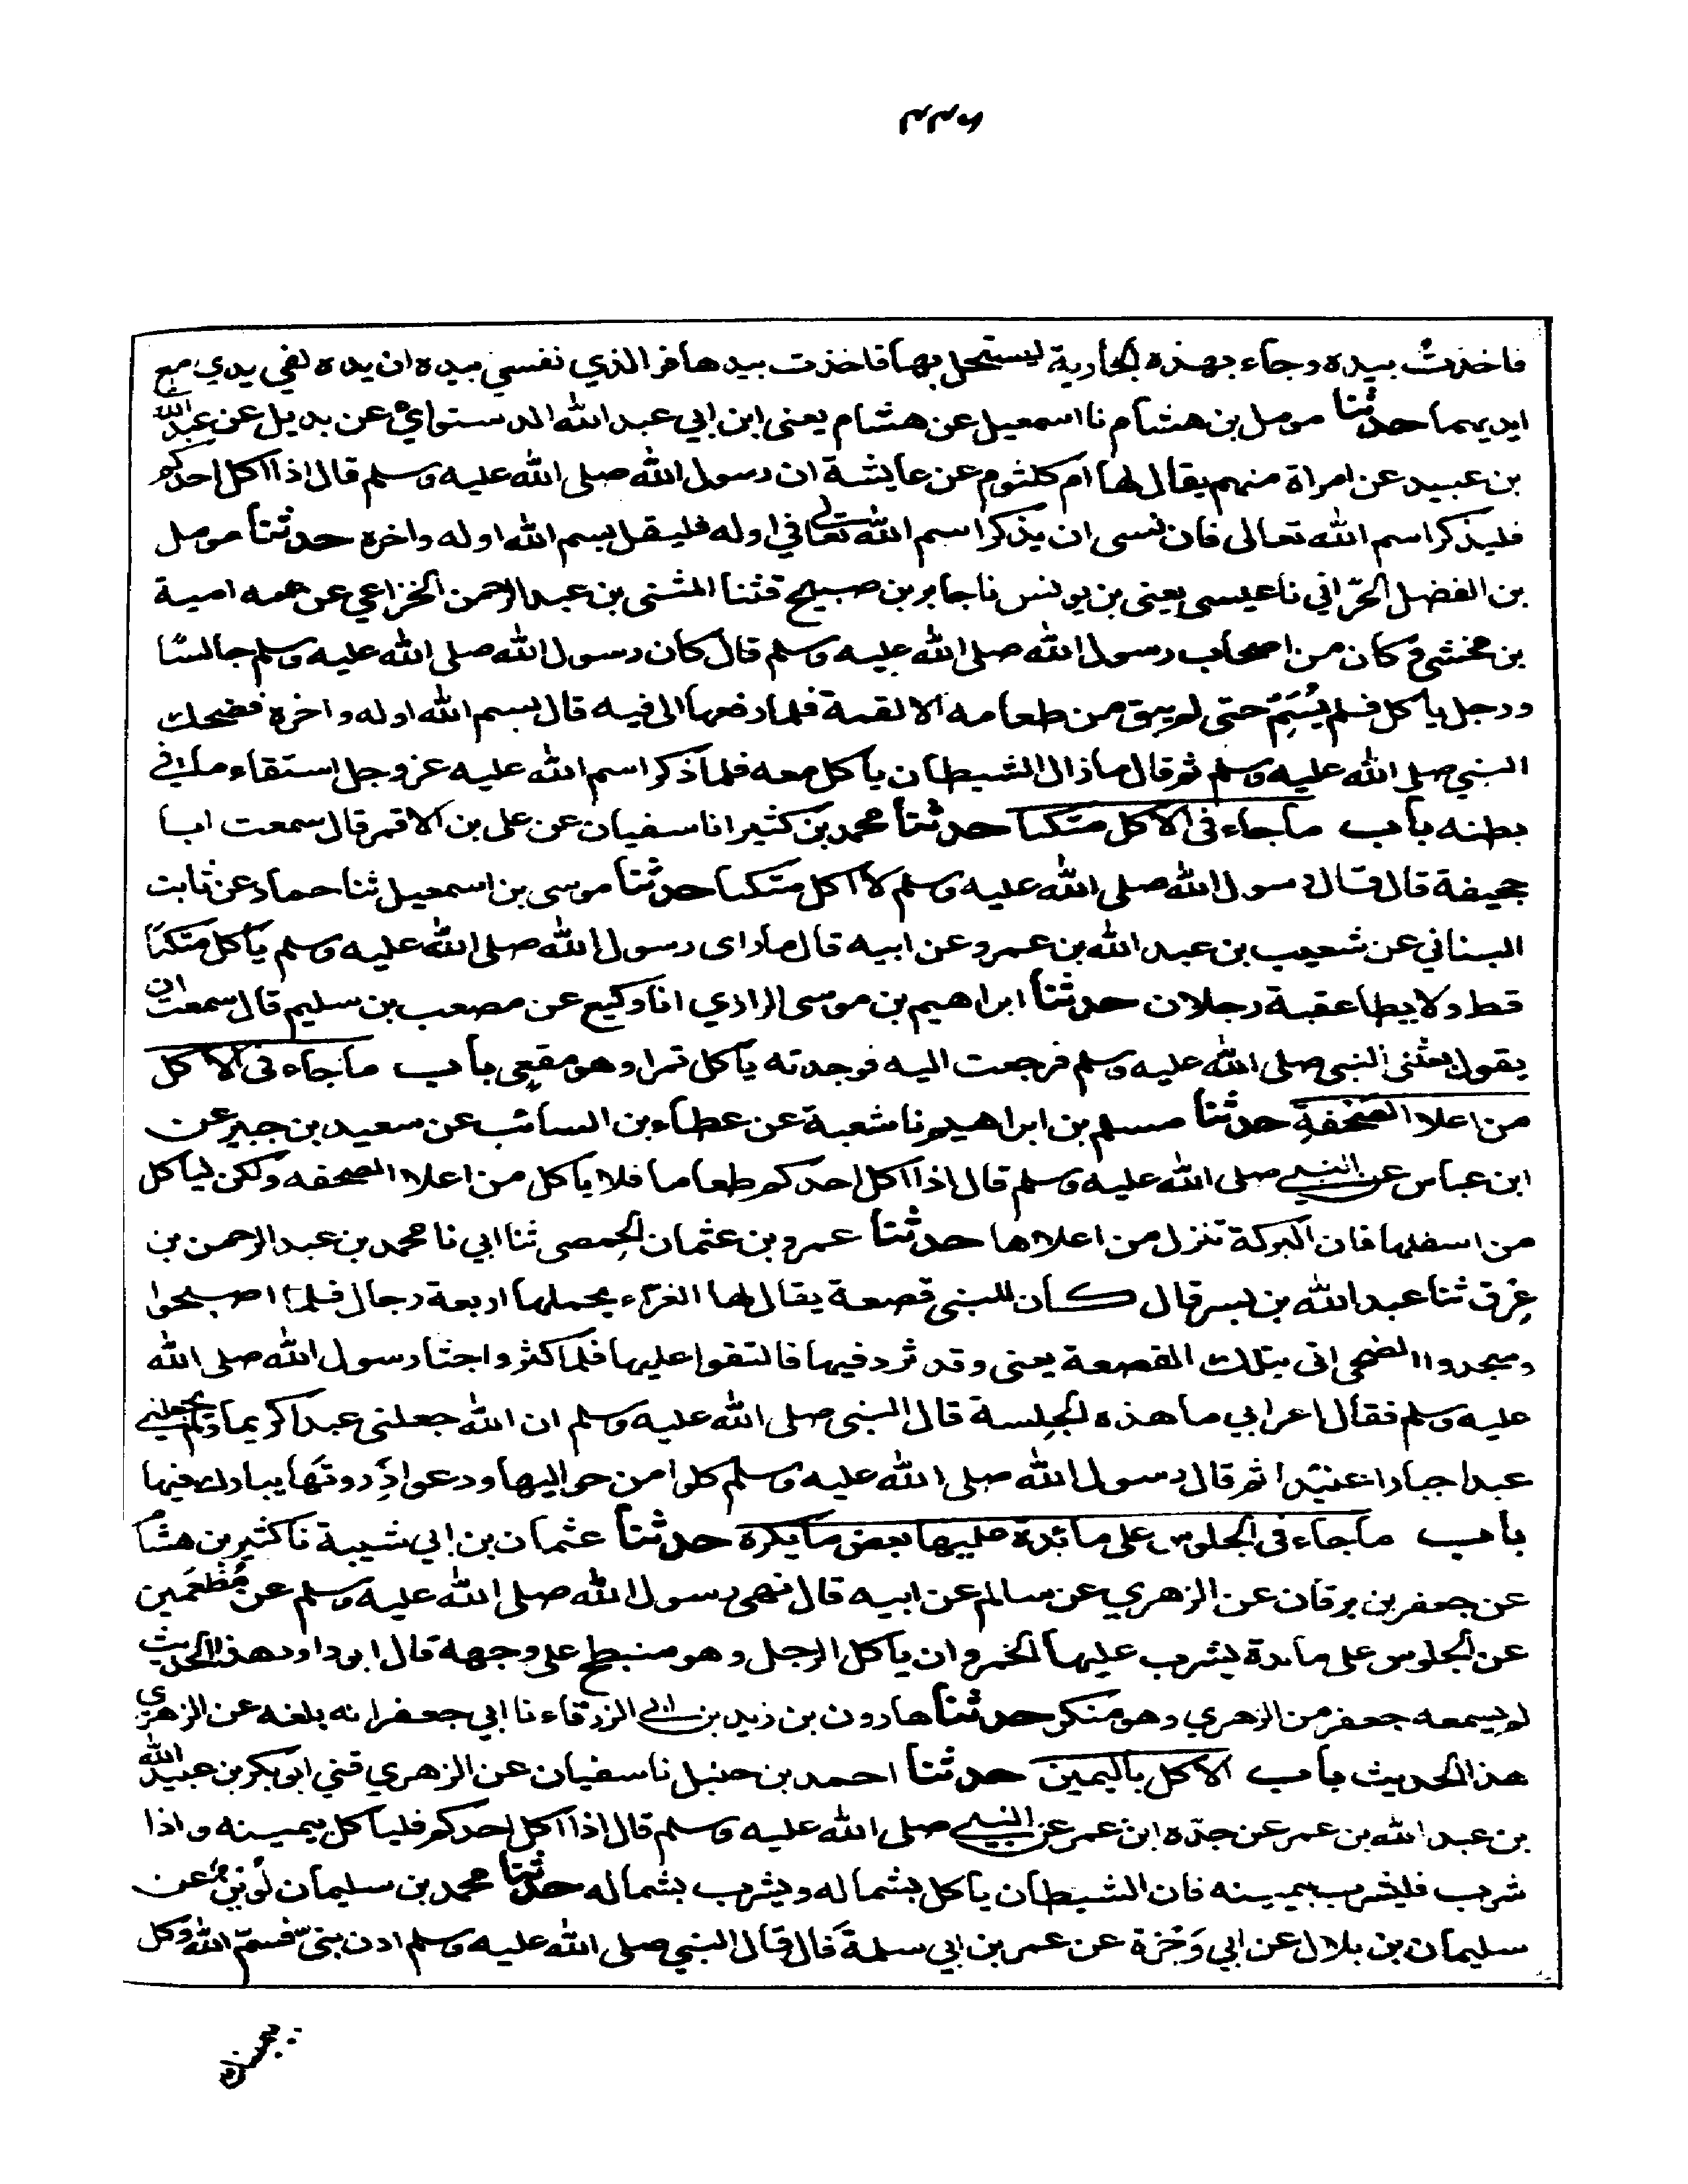 فاخذت بيده وجاء بهذه الجارية ليستحل بها فاخذت بيدها فو الذي نفسي بيده ان يده لفي يدي مع
ايديهما حدثنا مومل بن هشام نا اسمعيل عن هشام يعنى ابن ابي عبد الله الدستوائي عن بديل عن عبد الله
بن عبيد عن امراة منهم يقال لها ام كلثوم عن عايشة ان رسول الله صلى الله عليه وسلم قال اذا اكل احدكم
فليذكر اسم الله تعالى فان نسى ان يذكر اسم الله تعالى في اوله فليقل بسم الله اوله واخره حدثنا مومل
بن الفضل الحرّاني نا عيسى يعنى بن يونس نا جابر بن صبيح قثنا المثنى بن عبد الرحمن الخزاعي عن عمه امية
بن مخشي وكان من اصحاب رسول الله صلى الله عليه وسلم قال كان رسول الله صلى الله عليه وسلم جالسًا
ورجل ياكل فلم يُسَمِّ حتى لم يبق من طعامه الا لقمة فلما رفعها الى فيه قال بسم الله اوله واخره فضحك
النبي صلى الله عليه وسلم ثم قال ما زال الشيطان ياكل معه فلما ذكر اسم الله عليه عز وجل استقاء ما في
بطنه باب ما جاء فى الاكل متكيا حدثنا محمد بن كثير انا سفيان عن على بن الاقمر قال سمعت ابا
جحيفة قال قال رسول الله صلى الله عليه وسلم لا اكل متكيا حدثنا موسى بن اسمعيل ثنا حماد عن ثابت
البناني عن شعيب بن عبد الله بن عمرو عن ابيه قال ما راى رسول الله صلى الله عليه وسلم ياكل متكيًا
قط ولا يطا عقبة رجلان حدثنا ابراهيم بن موسى الرازي انا وكيع عن مصعب بن سليم قال سمعت ان
يقول بعثنى النبي صلى الله عليه وسلم فرجعت اليه فوجدته ياكل تمرا وهو مقعي باب ما جاء فى الاكل
من اعلا الصحفة حدثنا مسلم بن ابراهيم نا شعبة عن عطاء بن السائب عن سعيد بن جبير عن
ابن عباس عن النبي صلى الله عليه وسلم قال اذا اكل احدكم طعاما فلا ياكل من اعلا الصحفه ولكن لياكل
من اسفلها فان البركة تنزل من اعلاها حدثنا عمرو بن عثمان الحِمصى ثنا ابي نا محمد بن عبد الرحمن بن
عِرْق ثنا عبد الله بن بسر قال كان للنبى قصعة يقال لها الغرّاء يحملها اربعة رجال فلما اصبحوا
وسجدوا الضحى اتى بتلك القصعة يعنى وقد ثرد فيها فالتقوا عليها فلما كثروا جثا رسول الله صلى الله
عليه وسلم فقال اعرابي ما هذه الجِلسة قال النبى صلى الله عليه وسلم ان الله جعلنى عبدا كريما ولم يجعلني
عبدا جبارا عنيدا ثم قال رسول الله صلى الله عليه وسلم كلوا من حواليها ودعوا ذِروتها يبارك فيها
باب ما جاء فى الجلوس على مائدة عليها بعض ما يكره حدثنا عثمان بن ابي شيبة نا كثير بن هشام
عن جعفر بن برقان عن الزهري عن سالم عن ابيه قال نهى رسول الله صلى الله عليه وسلم عن مُطْعَمين
عن الجلوس على مائدة يشرب عليها الخمر وان ياكل الرجل وهو منبطح على وجهه قال ابو داود هذا الحديث
لم يسمعه جعفر من الزهري وهو منكر حدثنا هارون بن زيد بن ابي الزرقاء نا ابي جعفر انه بلغه عن الزهري
هذا الحديث باب الاكل باليمين حدثنا احمد بن حنبل نا سفيان عن الزهري قثني ابو بكر بن عبيد الله
بن عبد الله بن عمر عن جدّه ابن عمر عن النبي صلى الله عليه وسلم قال اذا اكل احدكم فلياكل بيمينه واذا
شرب فليشرب بيمينه فان الشيطان ياكل بشماله ويشرب بشماله حدثنا محمد بن سليمان لُوَيْن عن
سليمان بن بلال عن ابي وَجْزة عن عمر بن ابي سلمة قال قال النبي صلى الله عليه وسلم ادن بنيّ فسمّ الله وكل